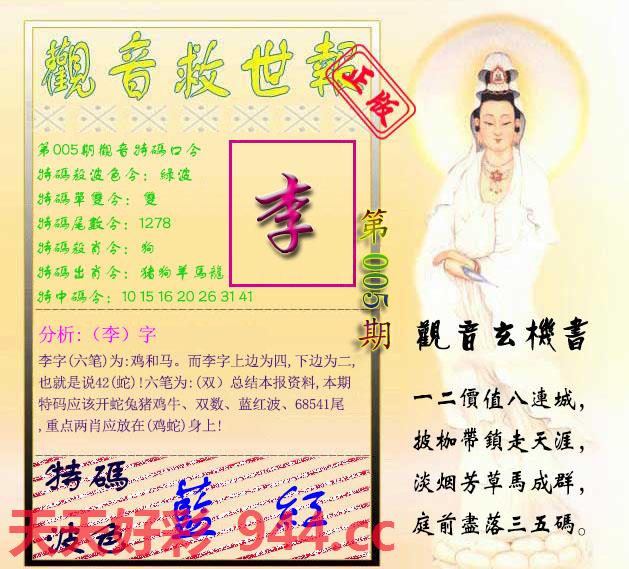 觀音救世報
正版
第005期觀音特碼口令
特碼殺波色令：綠波
特碼單雙令：雙
特碼尾數令：1278
特碼殺肖令：狗
特碼出肖令：猪狗羊馬龍
特中碼令：10 15 16 20 26 31 41
李
第005期
分析:（李）字
李字(六笔)为:鸡和马。而李字上边为四,下边为二,
也就是说42(蛇)!六笔为:(双）总结本报资料,本期
特码应该开蛇兔猪鸡牛、双数、蓝红波、68541尾
,重点两肖应放在(鸡蛇)身上!
特碼
波色
藍 紅
觀音玄機書
一二價值八連城，
披枷帶鎖走天涯，
淡烟芳草馬成群，
庭前盡落三五碼。
天天好彩 944.cc